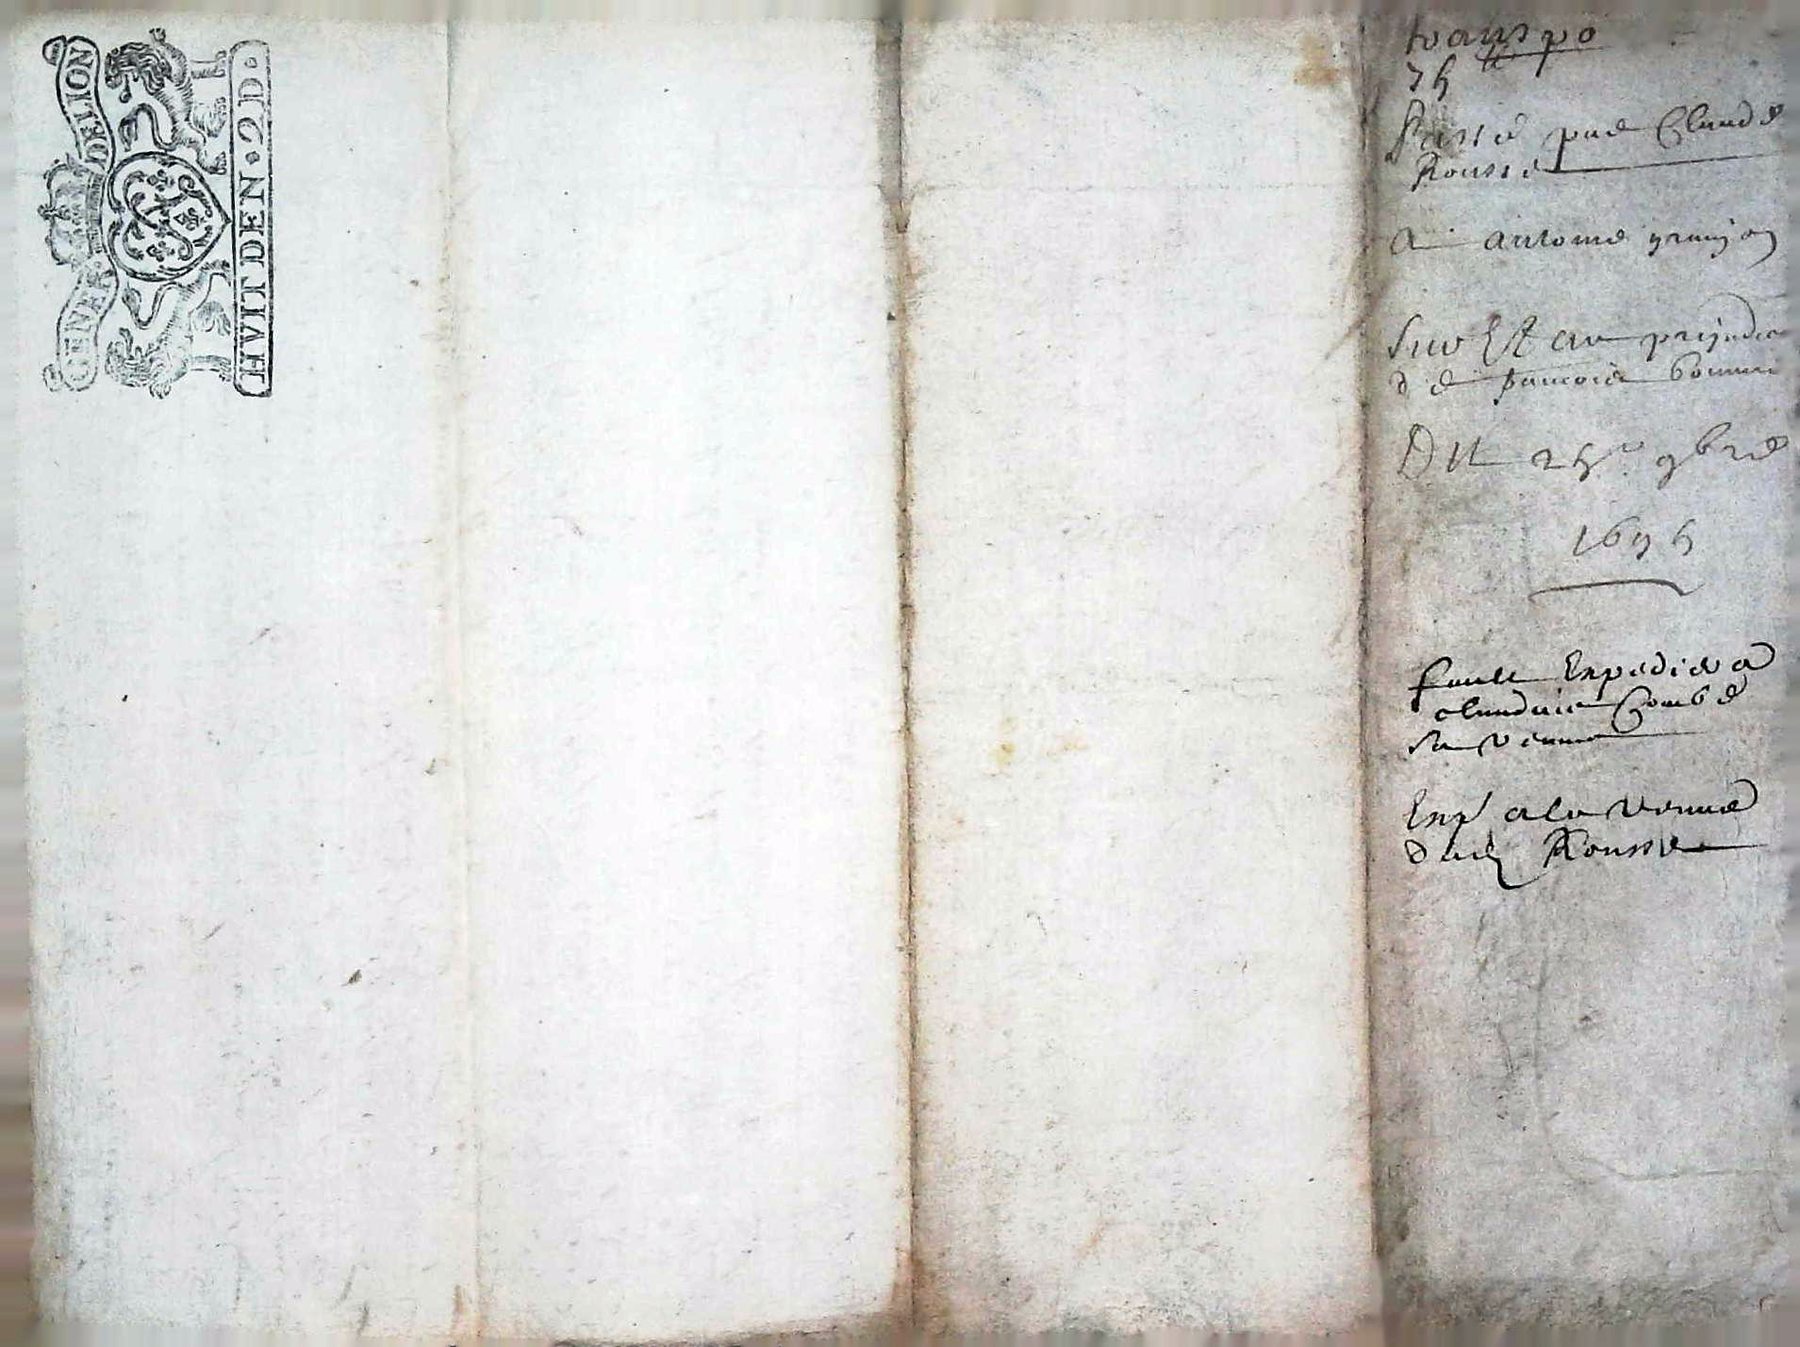 GENER DE LION
HVIT DEN · 2 D ·
transpo
Passé par Claude
Rousse
A antoine granjon
Sur Et au prejudice
de francois bonnen
Du 25e 9bre
1695
fault Expedier a
claudine Combe
sa veuve
Exp' a la veuve
dud Rousse